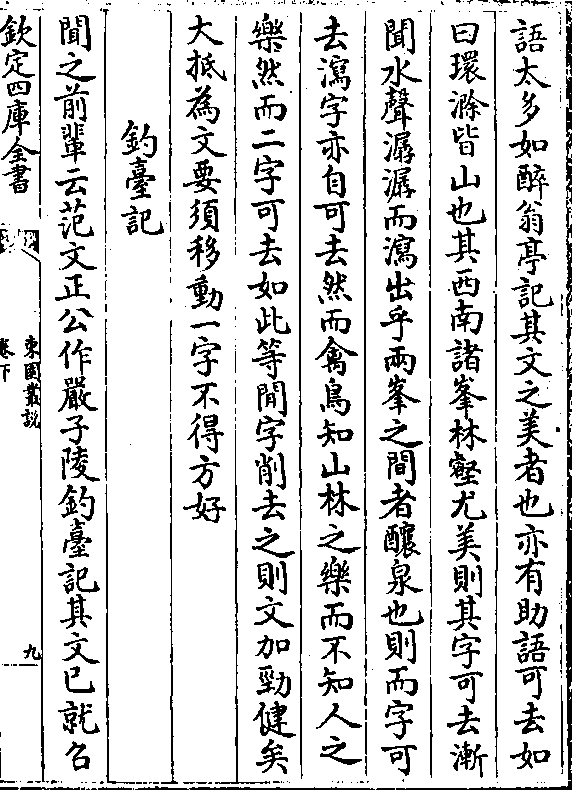 語太多如醉翁亭記其文之美者也亦有助語可去如
曰環滁皆山也其西南諸峯林壑尤美則其字可去漸
聞水聲潺潺而瀉出乎兩峯之間者釀泉也則而字可
去瀉字亦自可去然而禽鳥知山林之樂而不知人之
樂然而二字可去如此等閒字削去之則文加勁健矣
大抵為文要須移動一字不得方好
釣臺記
聞之前輩云范文正公作嚴子陵釣臺記其文已就召
欽定四庫全書
東園叢説
卷下
九